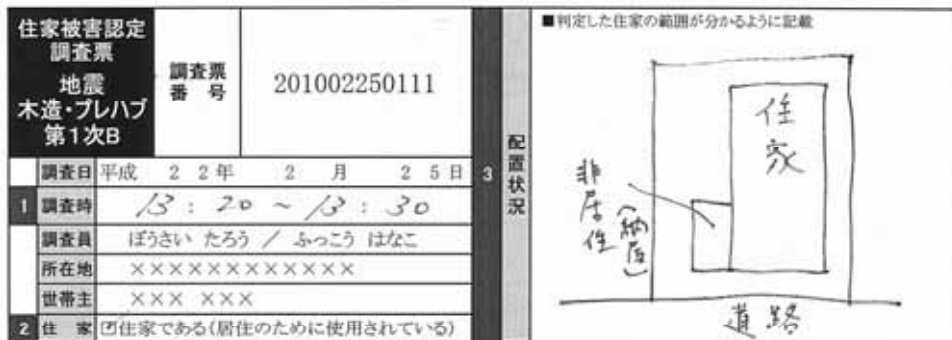 住家被害認定
調査票
地震
木造・プレハブ
第1次B
調査票
番 号
201002250111
調査日 平成 22年 2 月 25日
1 調査時 13 : 20 ~ 13 : 30
調査員 ぼうさい たろう / ふっこう はなこ
所在地 ××××××××××××
世帯主 ××× ×××
2 住 家 ☑住家である(居住のために使用されている)
3 配置状況
■判定した住家の範囲が分かるように記載
住家
非居住
(納屋)
道路